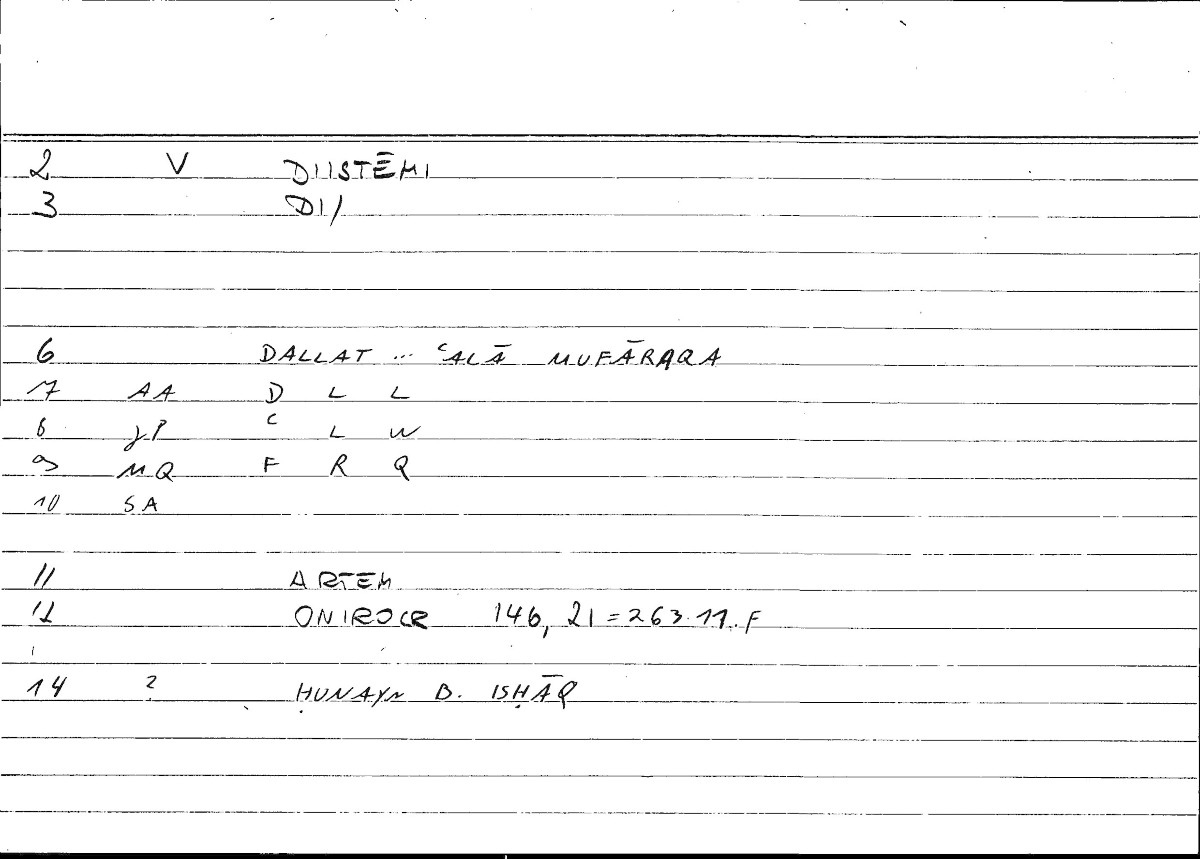 2 V DIISTĒMI
3 DI/
6 DALLAT ... ʿALĀ MUFĀRAQA
7 AA D L L
8 JP ʿ L W
9 MQ F R Q
10 SA
11 ARTEM
12 ONIROCR 146, 21 = 263.11.F
14 2 ḤUNAYN B. ISḤĀQ